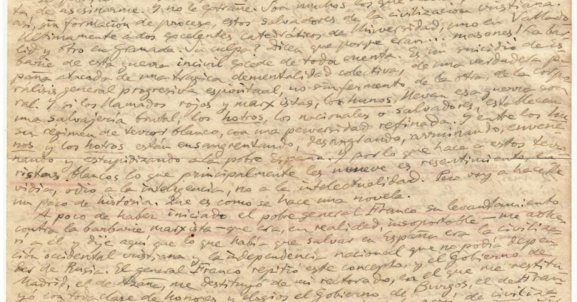 de asesinarme. Y no lo harán. Son muchos los que
sin formación de proceso, estos salvadores de la civilización cristiana.
Ultimamente a dos excelentes catedráticos de Universidad, uno en Vallado-
lid y otro en Granada. Su culpa? dicen que porque eran... masones! La bar-
barie de esta guerra incivil excede de toda cuenta. Es un suicidio de Es-
paña atacada de una trágica dementalidad colectiva, de una verdadera pa-
rálisis general progresiva espiritual, no sin fermento de la otra, de la corpo-
ral. Y si los llamados rojos y marxistas, los hunos, llevan esa guerra con
una salvajería brutal, los hotros, los nacionales o salvadores, esta llevan
su régimen de terror blanco, con una perversidad refinada. Y entre los hu-
nos y los hotros están ensangrentando, desangrando, arruinando, envene-
nando y estupidizando a la pobre España. Y por lo que hace a estos terro-
ristas blancos lo que principalmente les mueve es resentimiento, en-
vidia, odio a la inteligencia, no a la intelectualidad. Pero voy a hacerle
un poco de historia. Que es como se hace una novela.
A poco de haber iniciado el pobre general Franco su levantamiento
contra la barbarie marxista — que era, en realidad insoportable — me adherí
a él y dije aquí que lo que había que salvar en España era la civiliza-
ción occidental cristiana y la independencia nacional que no podía depen-
der de Rusia. El general Franco repitió este concepto, y el Gobierno de
Madrid, el de Azaña, me destituyó de mi rectorado, en el que me restitu-
yó con toda clase de honores y elogios el Gobierno de Burgos, el de Fran-